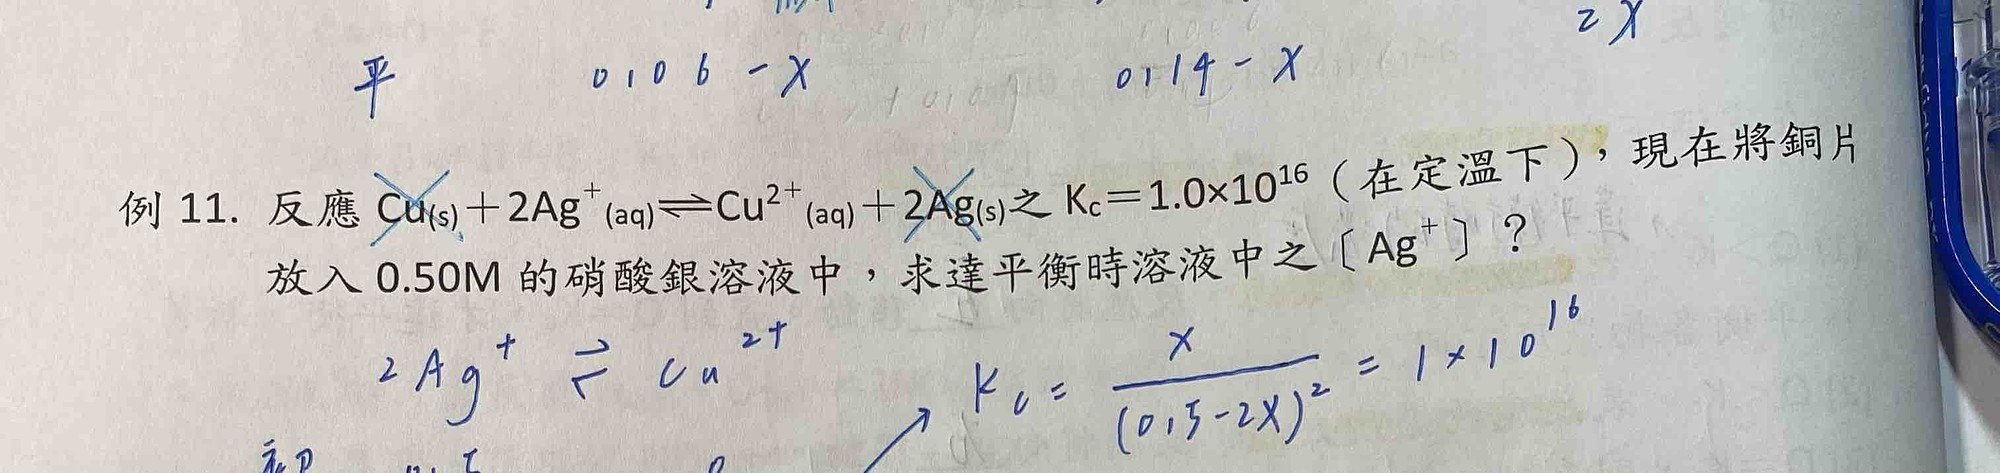 2X
平 0.06-X 0.14-X
例 11. 反應 Cu(s)＋2Ag⁺(aq)⇌Cu²⁺(aq)＋2Ag(s)之 Kc＝1.0×10¹⁶（在定溫下），現在將銅片
放入 0.50M 的硝酸銀溶液中，求達平衡時溶液中之［Ag⁺］？
2Ag⁺ ⇌ Cu²⁺
Kc = X/(0.5-2X)² = 1×10¹⁶